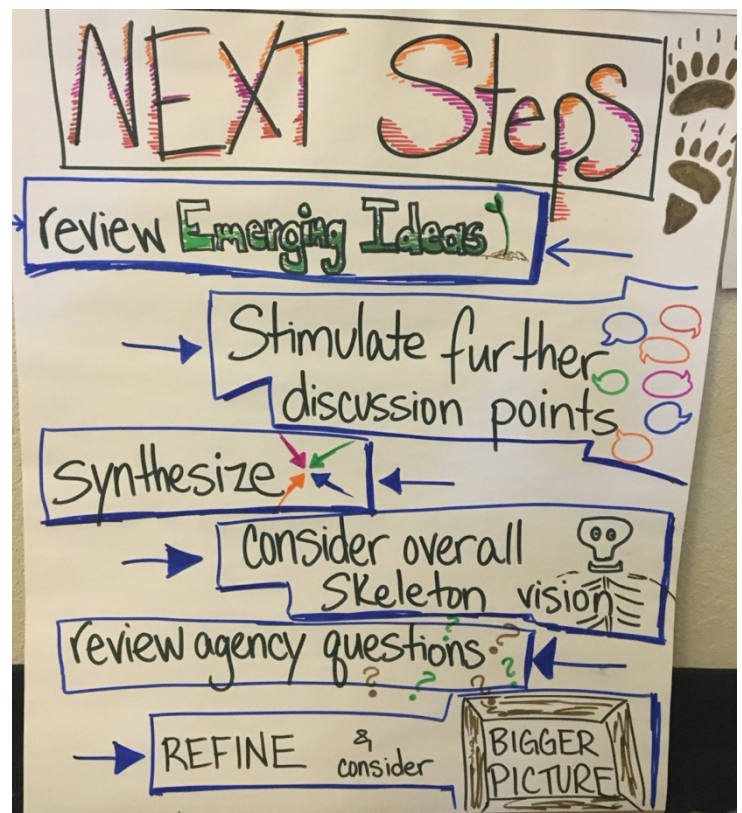 NEXT Steps
review Emerging Ideas
Stimulate further
discussion points
synthesize
consider overall
Skeleton vision
review agency questions
? ? ? ? ? ?
REFINE & consider BIGGER
PICTURE